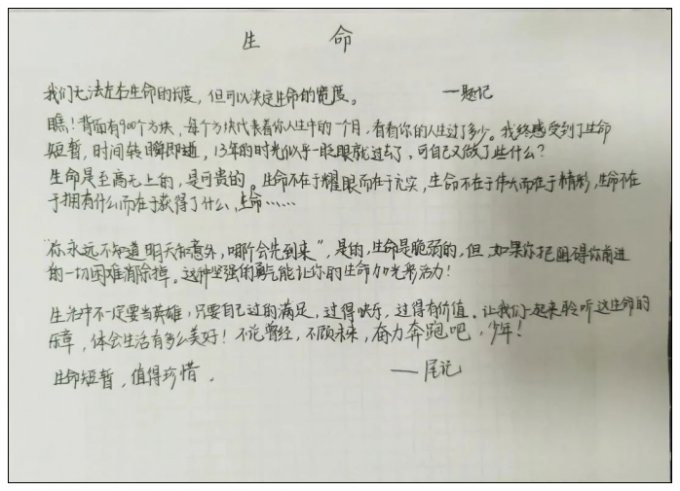 生 命
我们无法左右生命的长度，但可以决定生命的宽度。 —题记
瞧！背面有900个方块，每个方块代表着你人生中的一个月，看看你的人生过了多少。我终感受到了生命
短暂，时间转瞬即逝，13年的时光似乎一眨眼就过去了，可自己又做了些什么？
生命是至高无上的，是可贵的。生命不在于耀眼而在于充实，生命不在于伟大而在于精彩，生命不在
于拥有什么而在于获得了什么，生命……
“你永远不知道明天和意外，哪个会先到来”，是的，生命是脆弱的，但，如果你把阻碍你前进
的一切困难消除掉。这种坚强的勇气能让你的生命加光彩活力！
生活中不一定要当英雄，只要自己过的满足，过得快乐，过得有价值。让我们一起来聆听这生命的
乐章，体会生活有多么美好！不论曾经，不顾未来，奋力奔跑吧，少年！
生命短暂，值得珍惜。 ——尾记